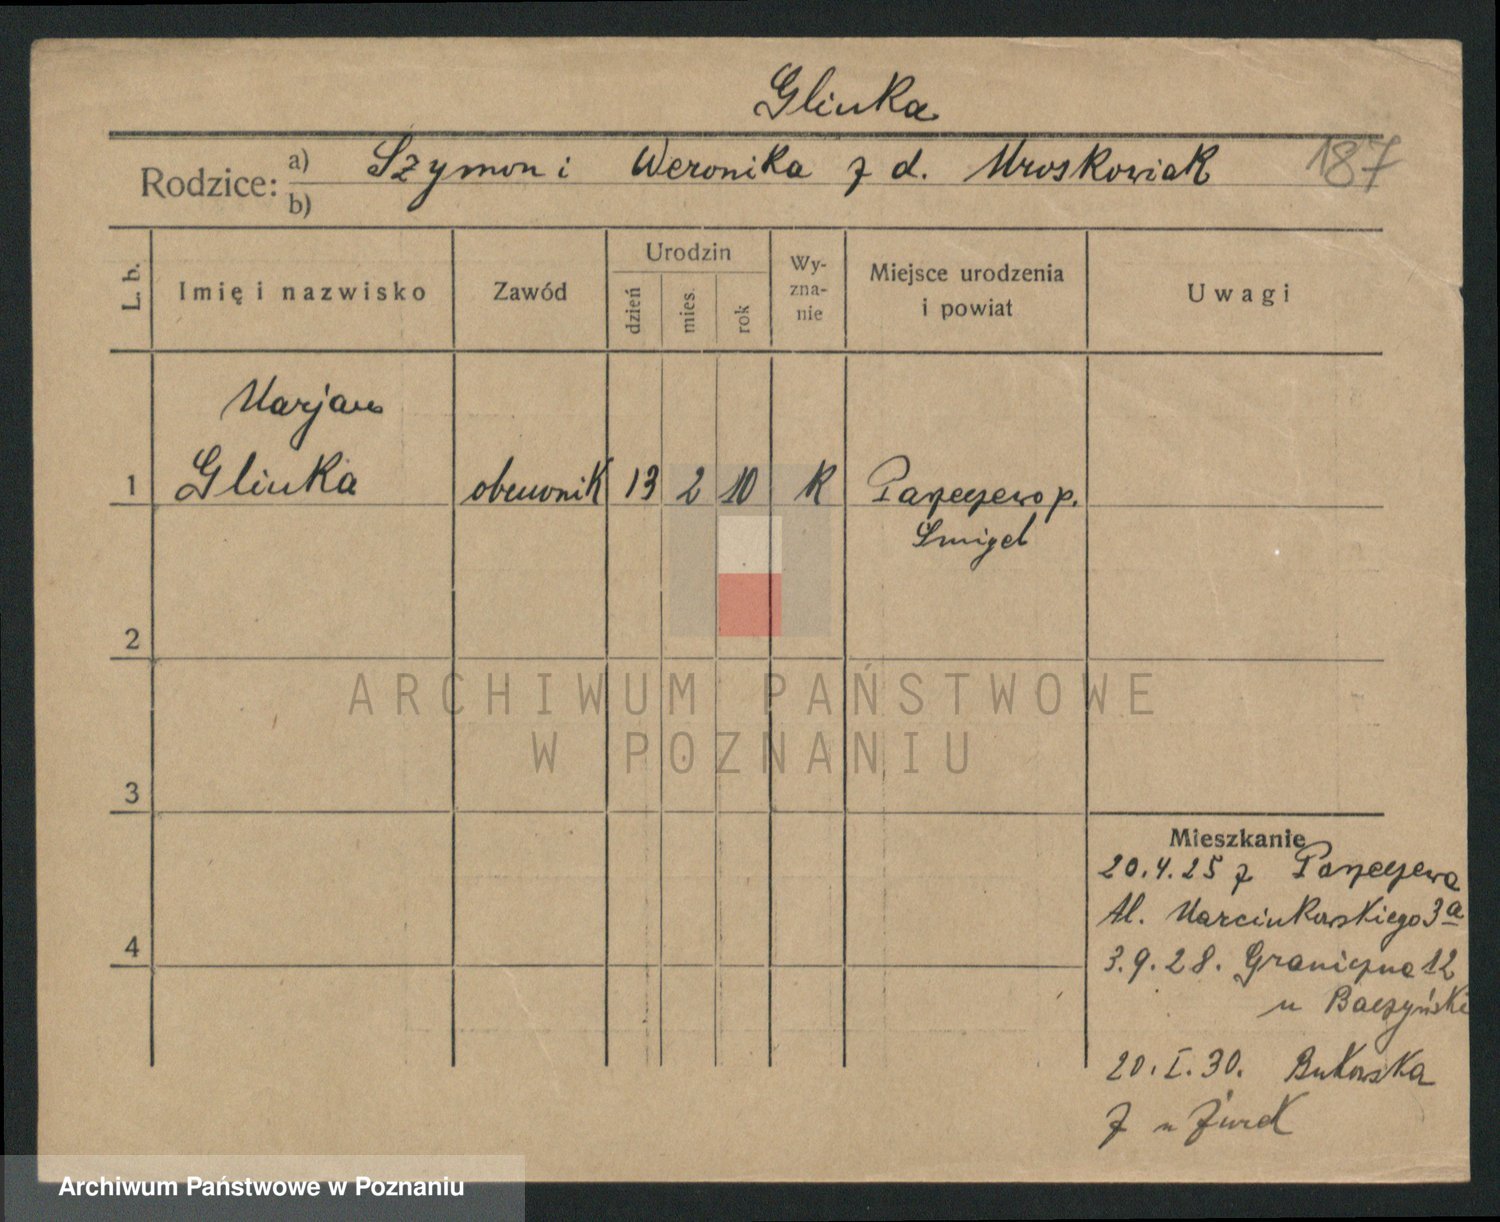 Glinka
187
Rodzice: a) Szymon i Weronika z d. Mroskowiak
b)
L. b.
Imię i nazwisko
Zawód
Urodzin
dzień
mies.
rok
Wy-
zna-
nie
Miejsce urodzenia
i powiat
Uwagi
Marjan
1 Glinka obuwnik 13 2 10 K Parzęczewo p.
Śmigel
2
3
4
Mieszkanie
20.4.25 z Parzęczewa
Al. Marcinkowskiego 3a
3.9.28. Graniczna 12
u Baczyński
20.I.30. Bukowska
7 u Żurek
ARCHIWUM PAŃSTWOWE
W POZNANIU
Archiwum Państwowe w Poznaniu